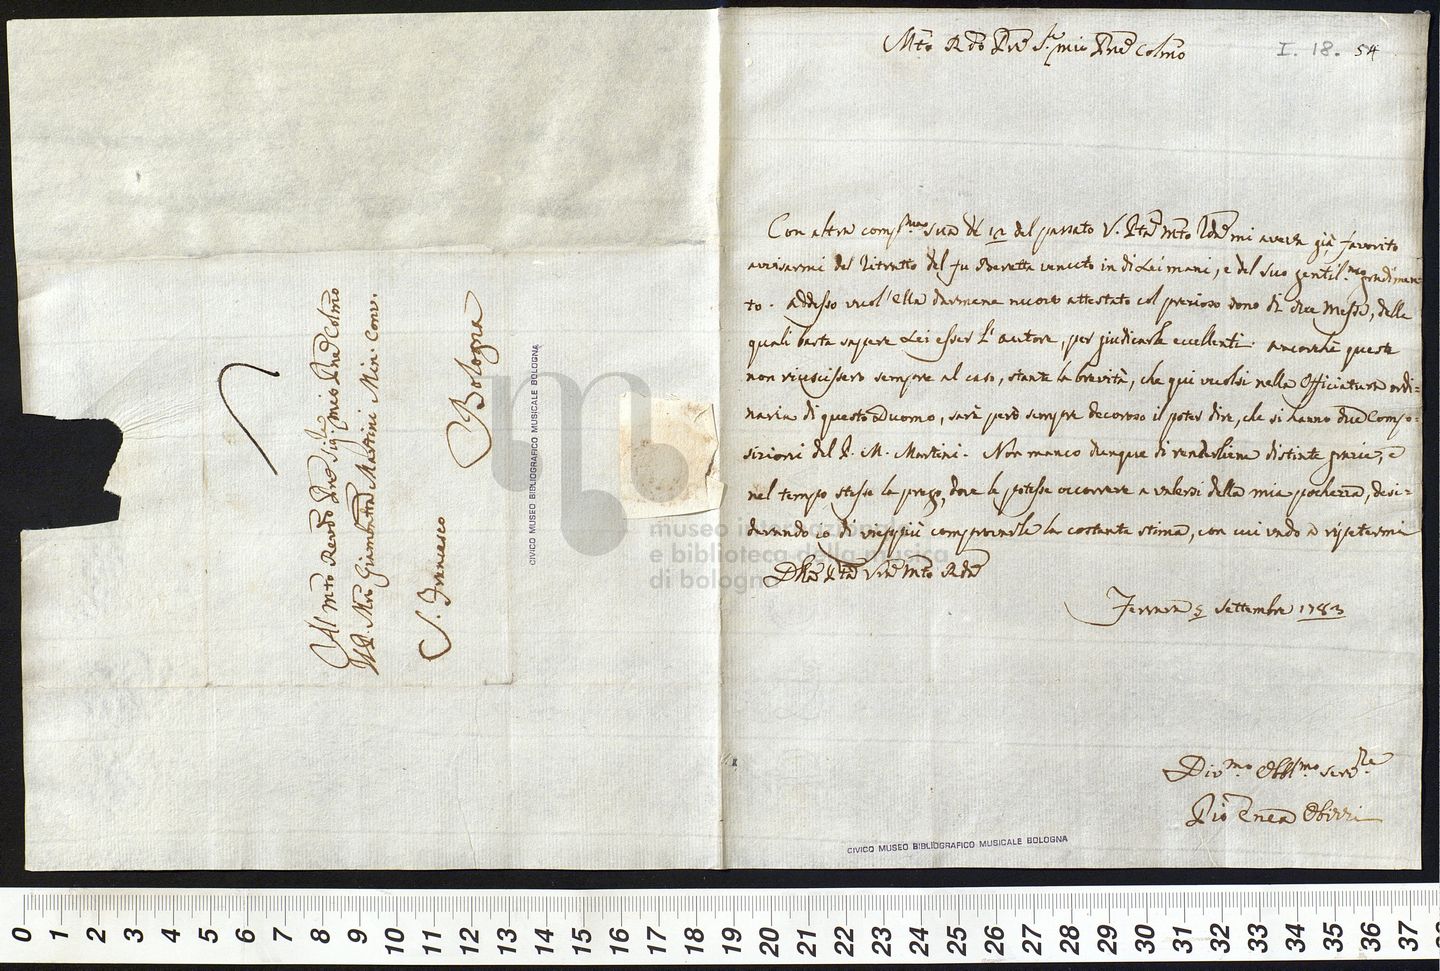 Al mto Revdo Pre Sigr mio Pne Colmo
Il P. Mro Giambatta Martini Min. Conv.
S. Francesco
Bologna
CIVICO MUSEO BIBLIOGRAFICO MUSICALE BOLOGNA
Mto Rdo Pre Sr mio Pne Colmo
I. 18. 54
Con altra compma sua de 12 del passato V. Pta Mto Rda mi aveva già favorito
avvisarmi del Ritratto del fu Beretta venuto in di Lei mani, e del suo gentilmo gradimen
to. Addesso vuol' Ella darmene nuovo attestato col prezioso dono di due Messe, delle
quali basta sapere Lei esser l'autore, per giudicarle eccellenti. Ancorchè queste
non riuscissero sempre al caso, stante la brevità, che qui vuolsi nella Officiatura ordi=
naria di questo Duomo, sarà però sempre decoroso il poter dire, che si hanno due Compo=
sizioni del P. M. Martini. Non manco dunque di renderliene distinte grazie, e
nel tempo stesso la prego, dove le potesse occorrere a valersi della mia pochezza, desi=
derando io di vieppiù comprovarle la costante stima, con cui vado a ripetermi
Della Pta Vra Mto Rda
Ferrara 5 Settembre 1783
Divmo Obblmo Servre
Pio Enea Obizzi
CIVICO MUSEO BIBLIOGRAFICO MUSICALE BOLOGNA
museo internazionale
e biblioteca della musica
di bologna
0 1 2 3 4 5 6 7 8 9 10 11 12 13 14 15 16 17 18 19 20 21 22 23 24 25 26 27 28 29 30 31 32 33 34 35 36 37